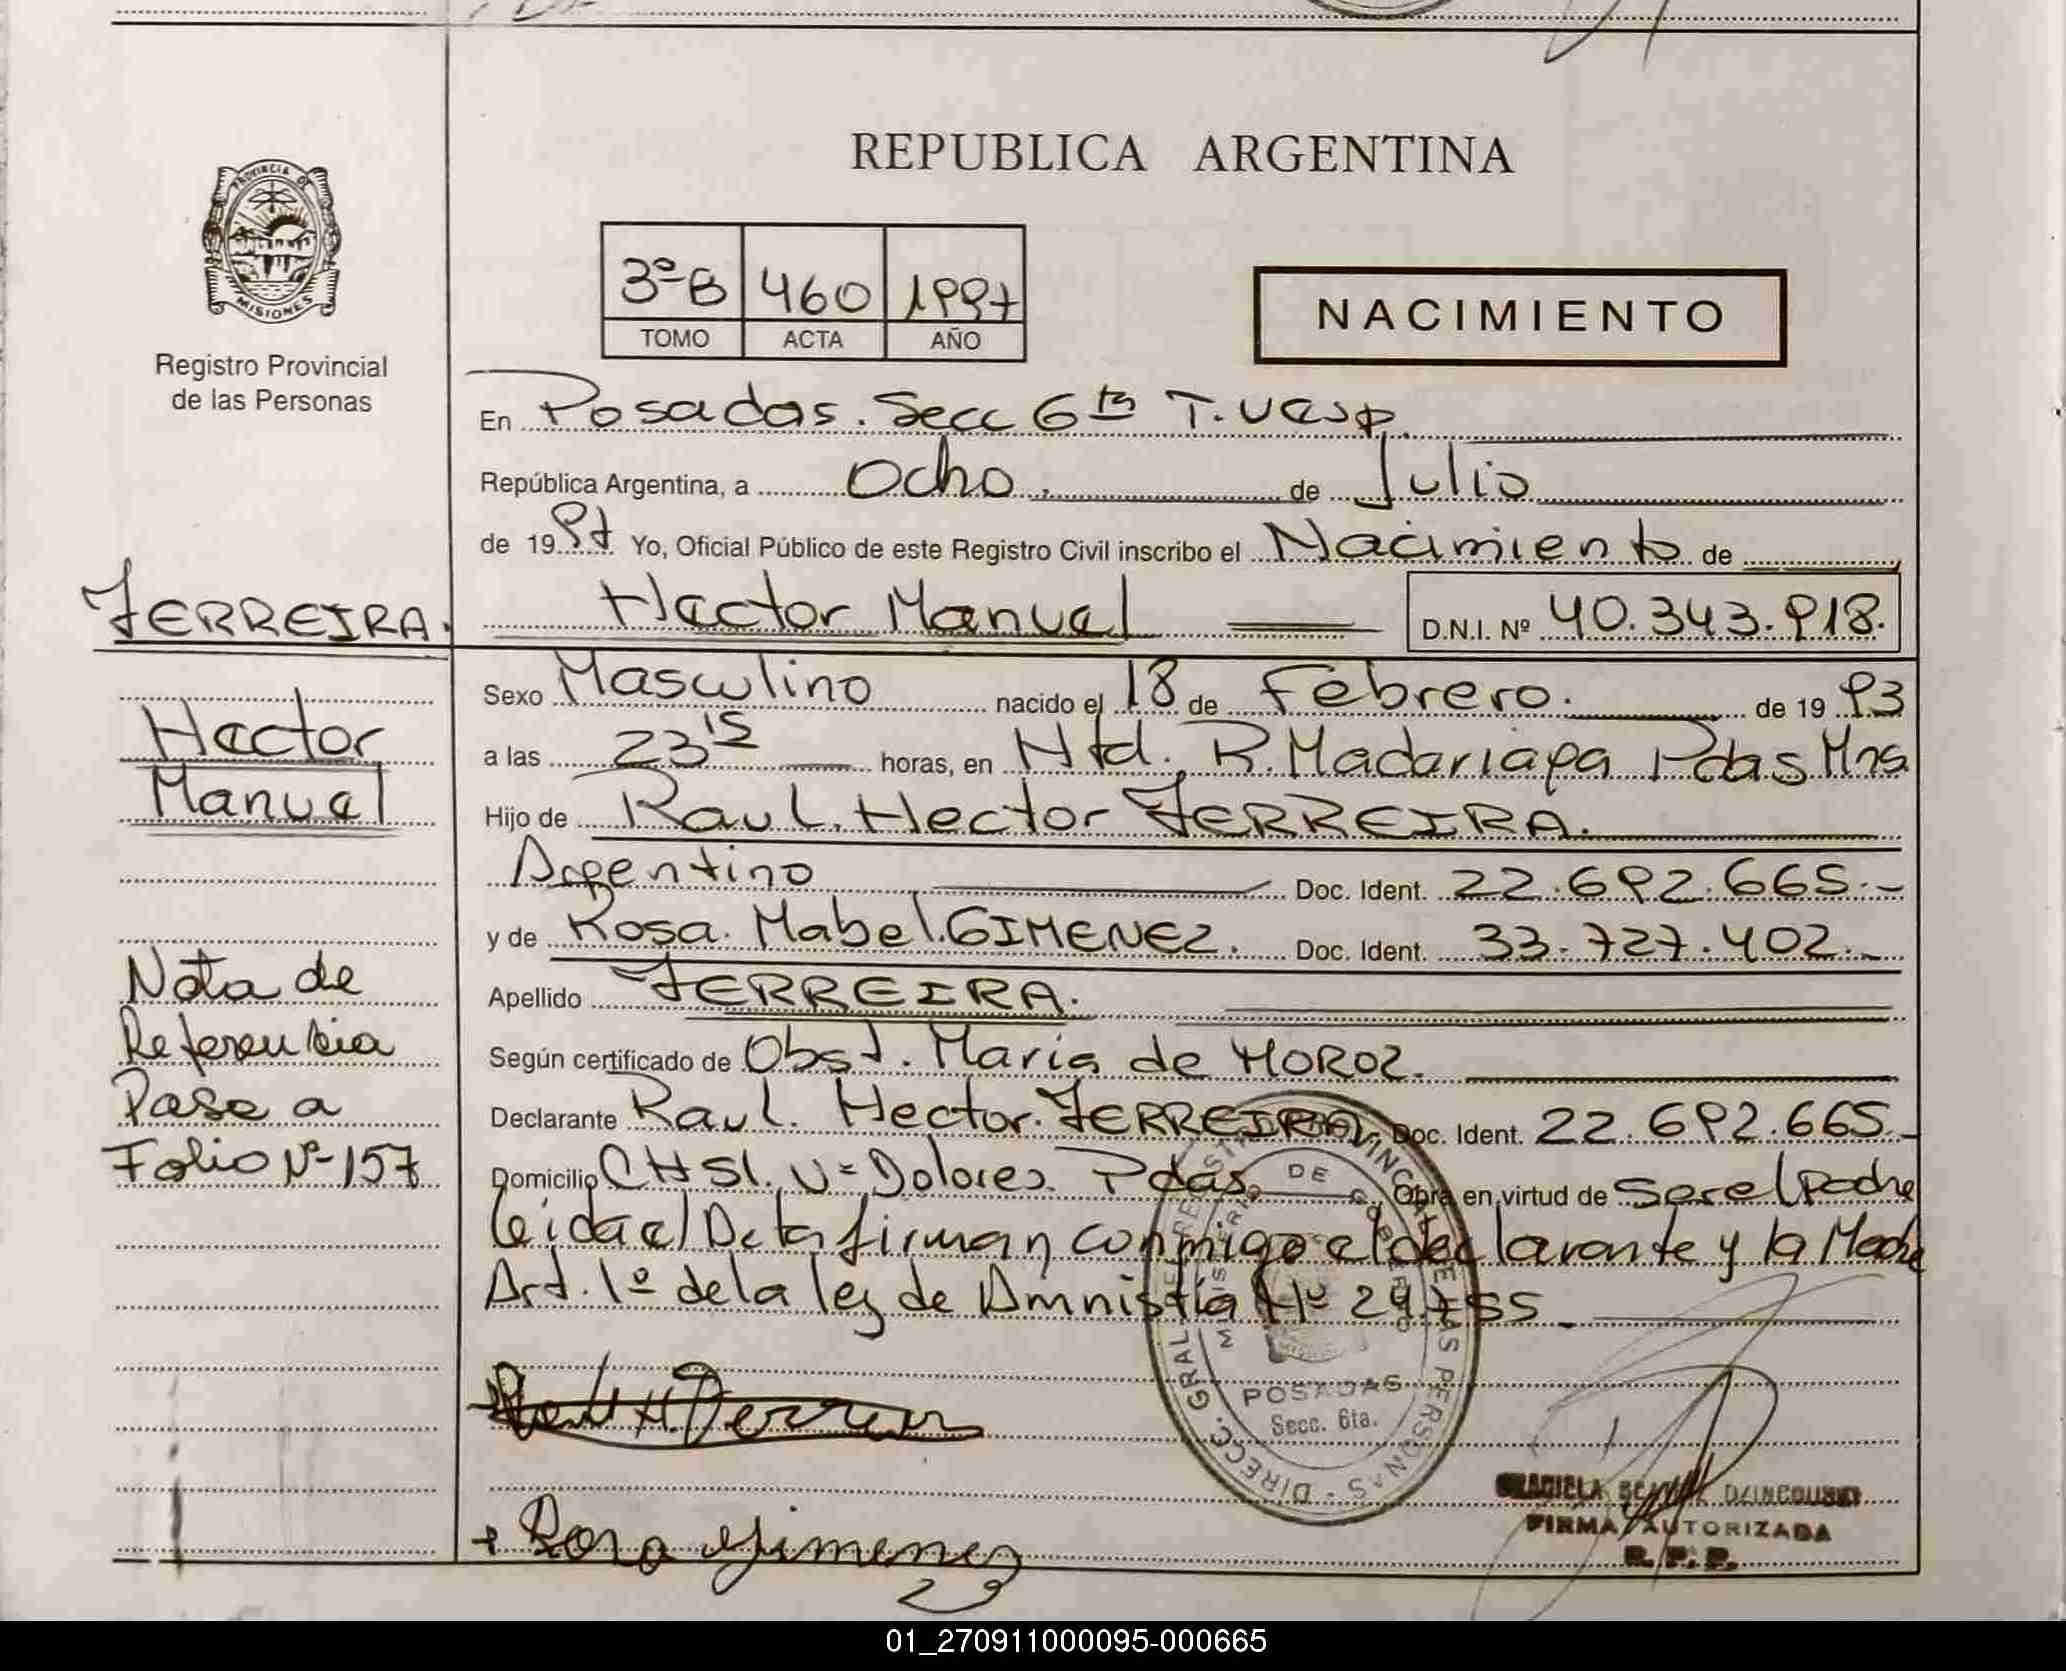 PROVINCIA DE
MISIONES
Registro Provincial
de las Personas
REPUBLICA ARGENTINA
3º B 460 1997
TOMO ACTA AÑO
NACIMIENTO
En Posadas. Secc 6ta T. Vesp.
República Argentina, a Ocho. de Julio
de 1997 Yo, Oficial Público de este Registro Civil inscribo el Nacimiento de
FERREIRA.
Hector Manuel D.N.I. Nº 40.343.918.
Hector
Manuel
Sexo Masculino nacido el 18 de Febrero. de 1993
a las 23 15 horas, en Htd. R. Madariaga Pdas Mns
Hijo de Raul. Hector FERREIRA.
Argentino Doc. Ident. 22.692.665.-
y de Rosa. Mabel. GIMENEZ. Doc. Ident. 33.727.402.-
Apellido FERREIRA.
Según certificado de Obst. Maria de MOROZ.
Declarante Raul. Hector. FERREIRA, Doc. Ident. 22.692.665.-
Domicilio CH 51. Vº Dolores Pdas. Obra en virtud de ser el padre
leida el Acta firman conmigo el declarante y la Madre
Art. 1º de la ley de Amnistía Nº 24.755.-
Nota de
Referencia
Pase a
Folio Nº 157
DE
POSADAS
Secc. 6ta.
Raul H Ferreira
+ Rosa Gimenez
GRACIELA
FIRMA AUTORIZADA
R. P. P.
01_270911000095-000665